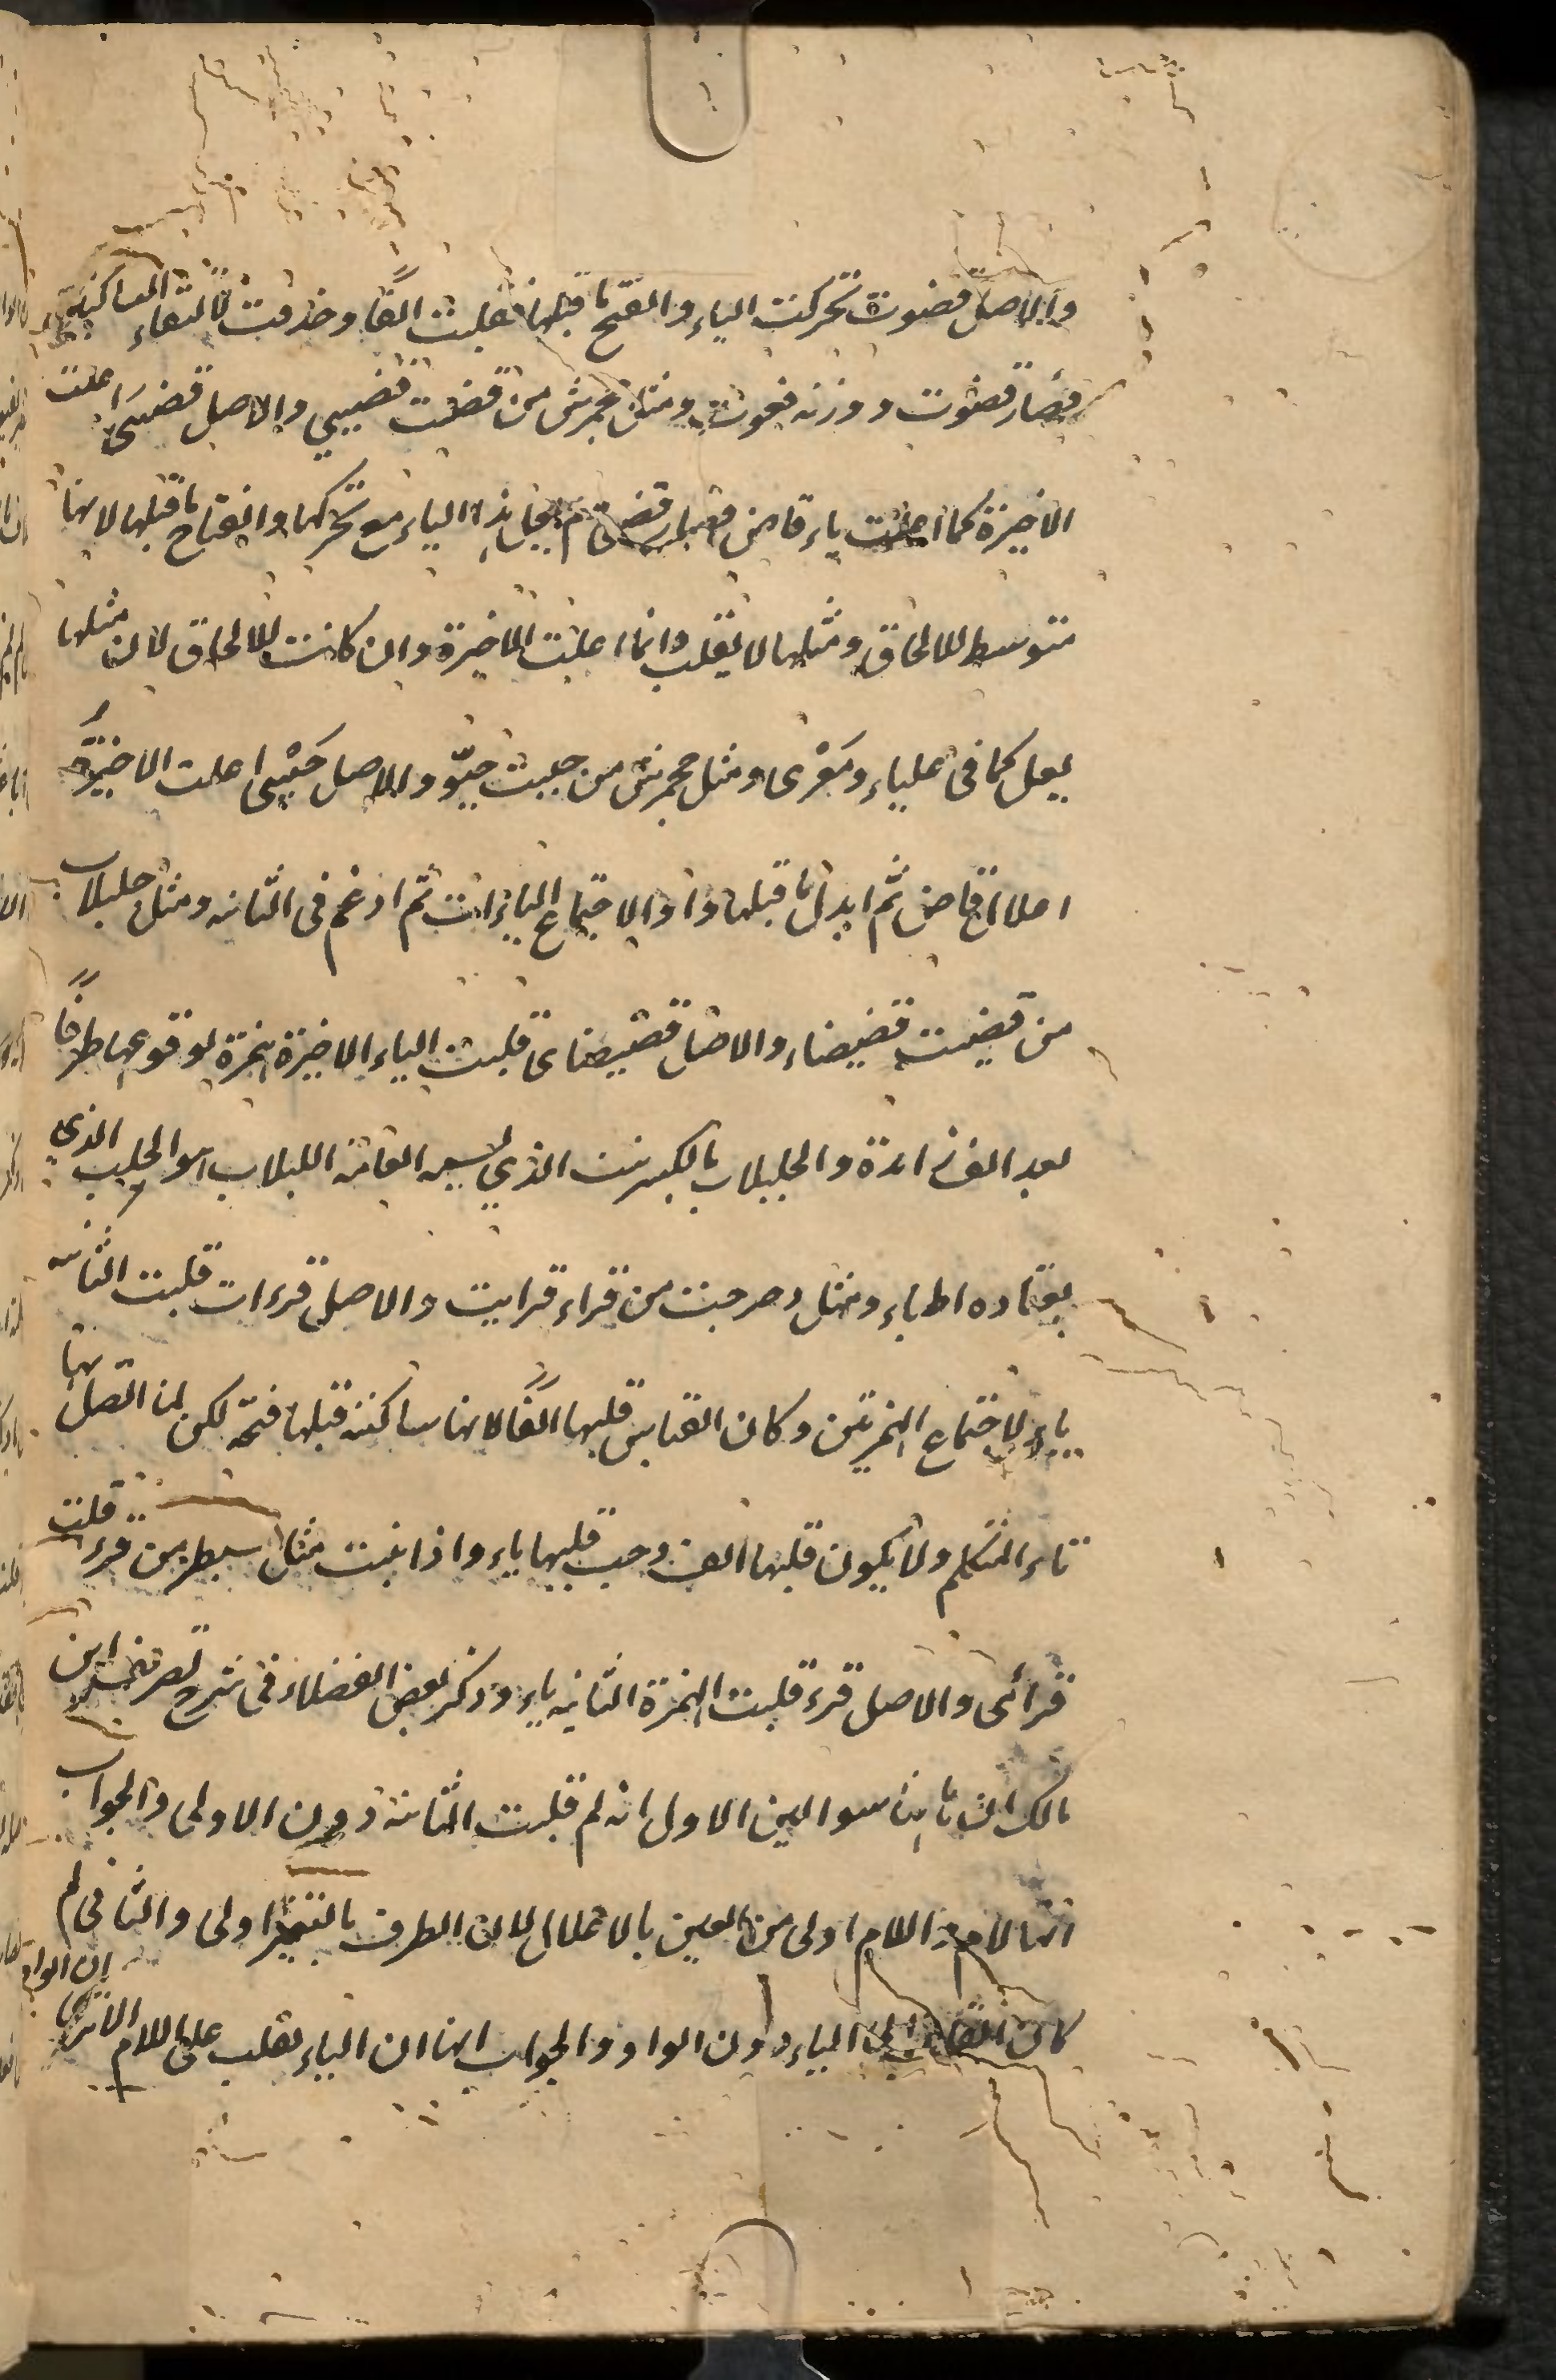 والاصل قضيوت تحركت الياء وانفتح ما قبلها فقلبت الفًا وحذفت لالتقاء الساكنين
فصار قضوت ووزنه فعوت ومثل جحمرش من قضيت قضيي والاصل قضييى اعلت
الاخيرة كما اعلت ياء قاض فصار قضى ولم يعل هذه الياء مع تحركها وانفتاح ما قبلها لانها
متوسط للالحاق ومثلها لا يقلب وانما اعلت الاخيرة وان كانت للالحاق لان مثلها
يعل كما في علباء ومعزى ومثل جحمرش من حييت حيوّ والاصل حَيْيى اعلت الاخيرة
اعلال قاض ثم ابدل ما قبلها واوا لاجتماع الياءات ثم ادغم في الثانيه ومثل حلبلاب
من قضيت قضيضاء والاصل قضيضاى قلبت الياء الاخيرة همزة لوقوعها طرفًا
بعد الف زائدة والحلبلاب بالكسر نبت الذي تسميه العامة اللبلاب هو الحلب الذي
يعتاده الظباء ومثل دحرجت من قراء قرايت والاصل قرءات قلبت الثانيه
ياء لاجتماع الهمزتين وكان القياس قلبها الفًا لانها ساكنة قبلها فتحة لكن لما اتصل بها
تاء المتكلم ولا يكون قبلها الف وجب قلبها ياء واذا بنيت مثال سبطر من قرء قلت
قرأى والاصل قرء قلبت الهمزة الثانيه ياء وذكر بعض الفضلاء في شرح تصريف ابن
مالك ان ههنا سوالين الاول انه لم قلبت الثانية دون الاولى والجواب
انها لام واللام اولى من العين بالاعلال لان الطرف بالتغيير اولى والثاني لم
كان القلب الى الياء دون الواو والجواب انها ان الياء تغلب على اللام
ان الواو